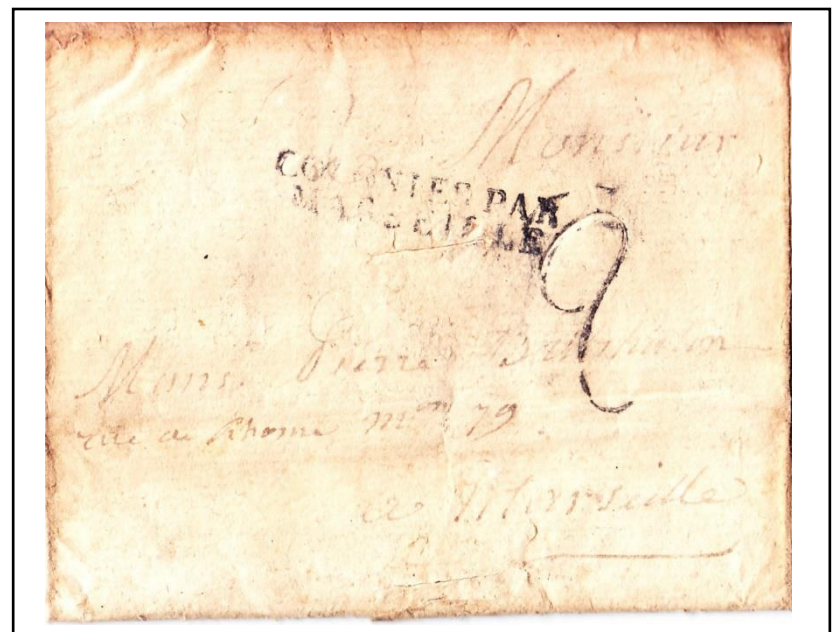 Monsieur
COLONIES PAR
MARSEILLE
9
Mons. Pierre
rue de Rhome mon 79
a Marseille